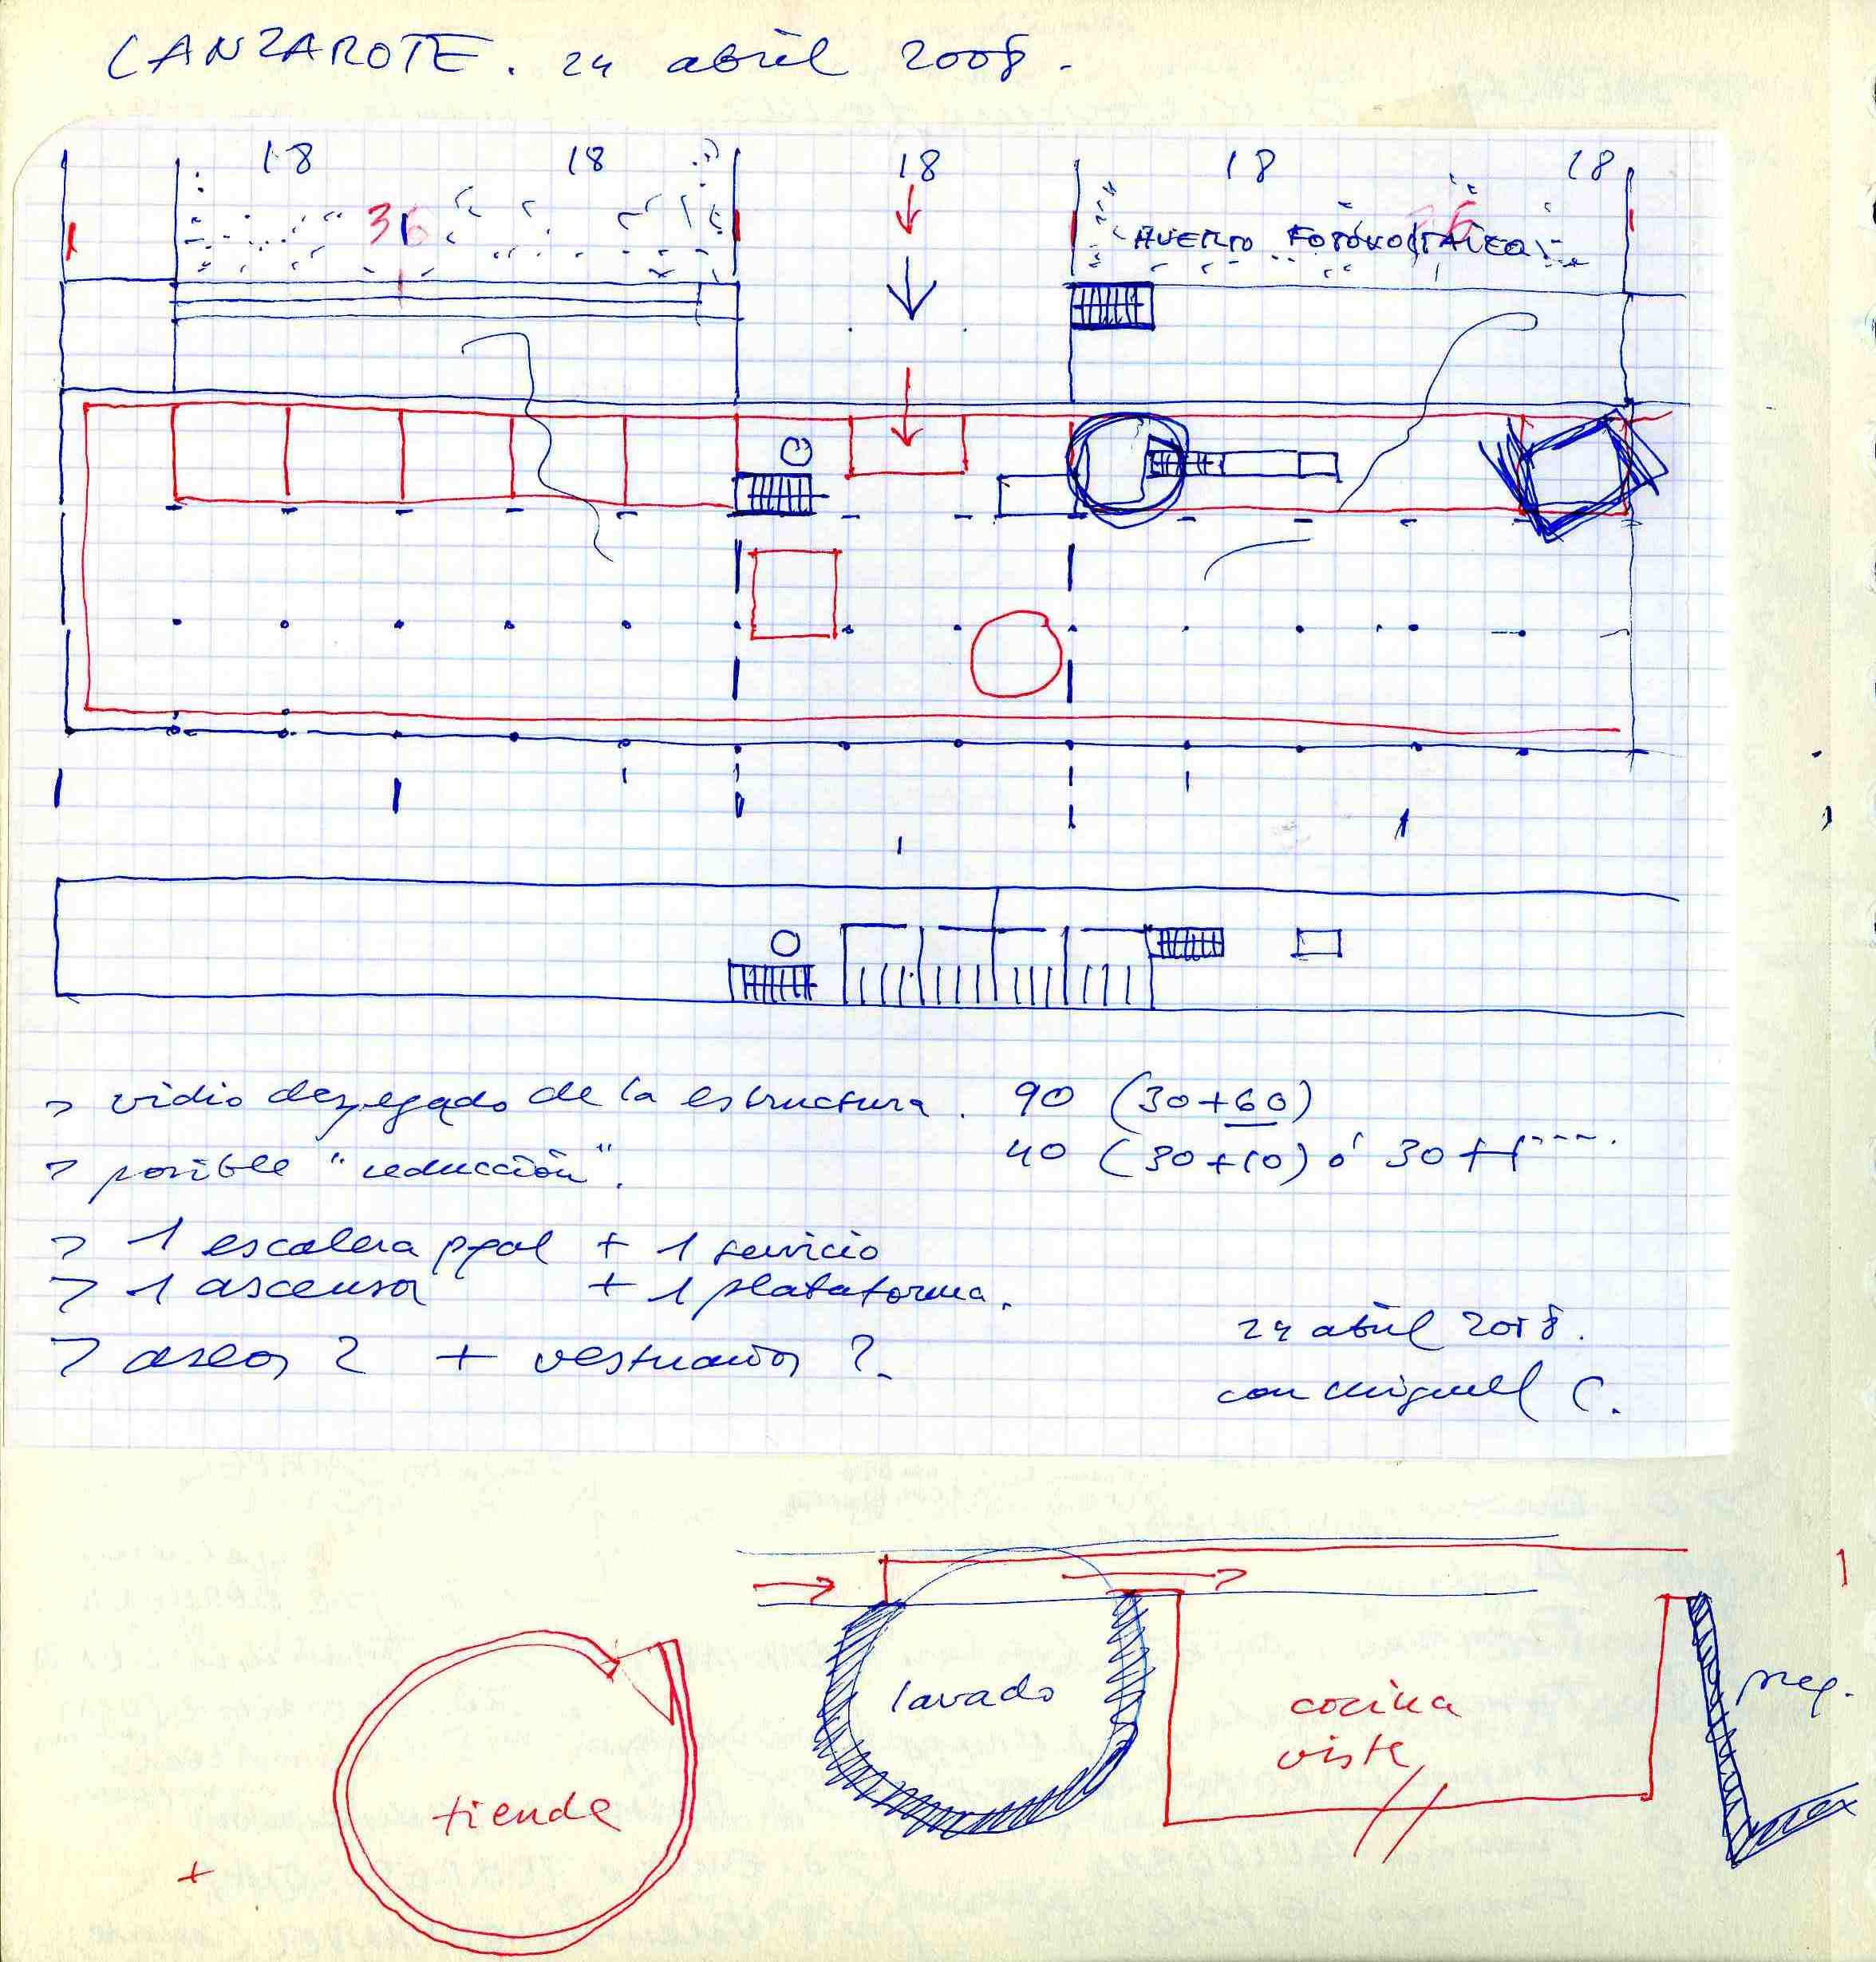 LANZAROTE. 24 abril 2008.
18 18 18 18 18
36 36
HUERTO FOTOVOLTAICO
> vidrio despegado de la estructura. 90 (30+60)
> posible "reducción". 40 (30+10) ó 30 +
> 1 escalera ppal + 1 servicio
> 1 ascensor + 1 plataforma.
> aseos ? + vestuarios ?.
24 abril 2008.
con Miguel C.
lavado
cocina
vista
prep.
tienda
+